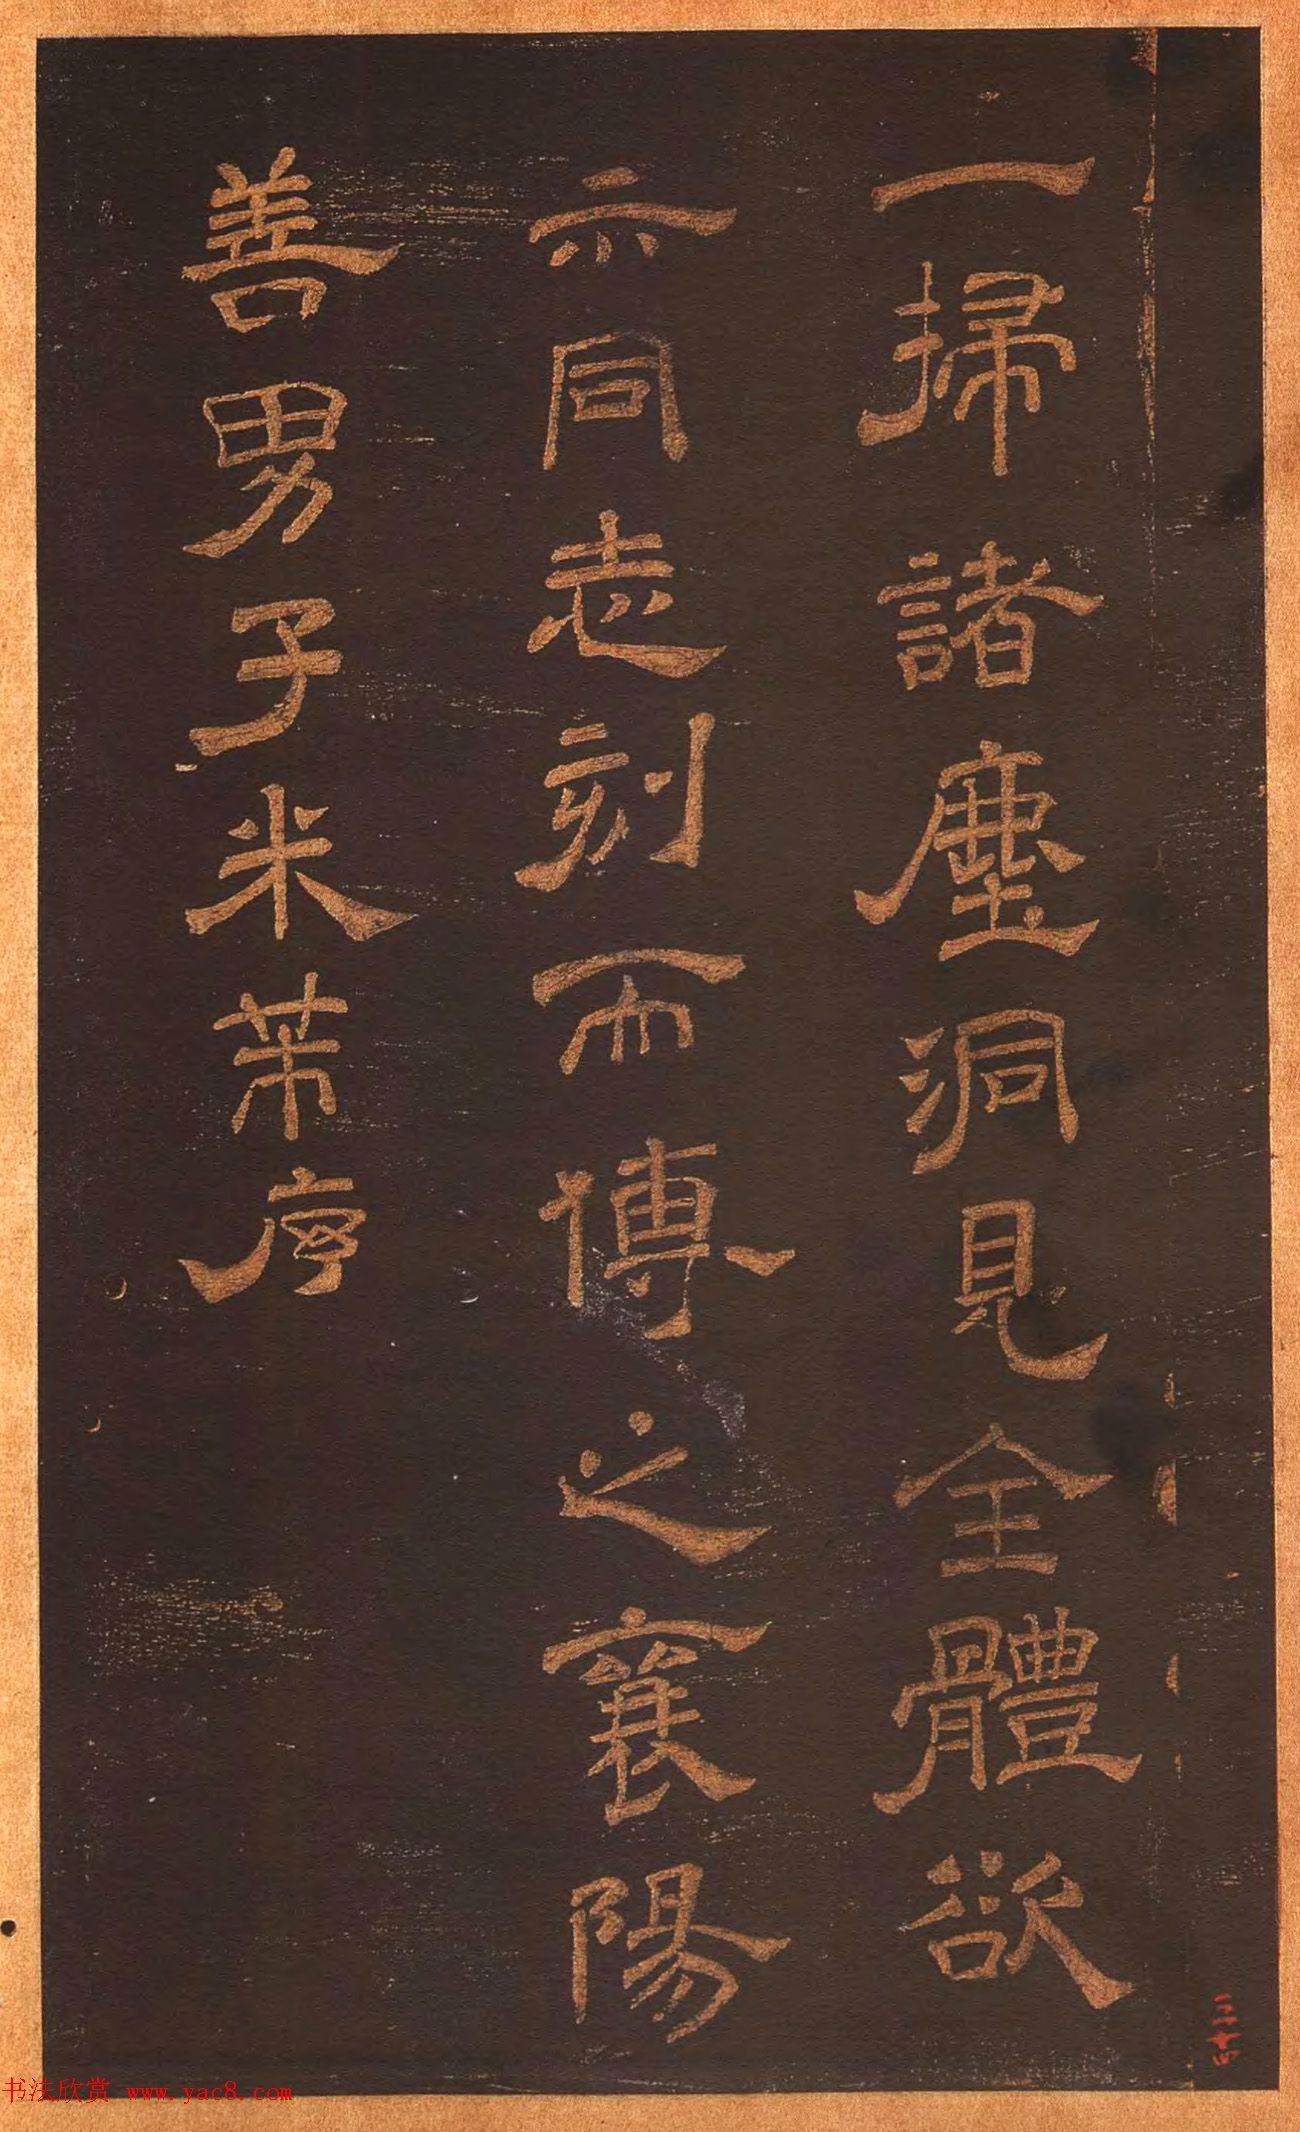 一掃諸塵洞見全體欲
示同志刻而傳之襄陽
善男子米芾序
三十四
书法欣赏 www.yac8.com